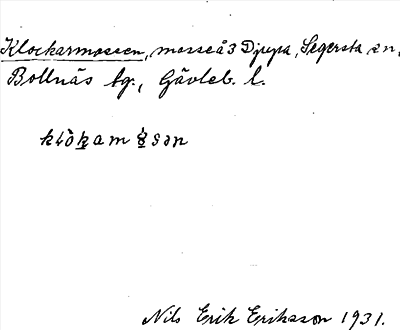 Klockarmossen, mosse å 3 Djupa, Segersta sn,
Bollnäs tg., Gävleb. l.
Nils Erik Eriksson 1931.